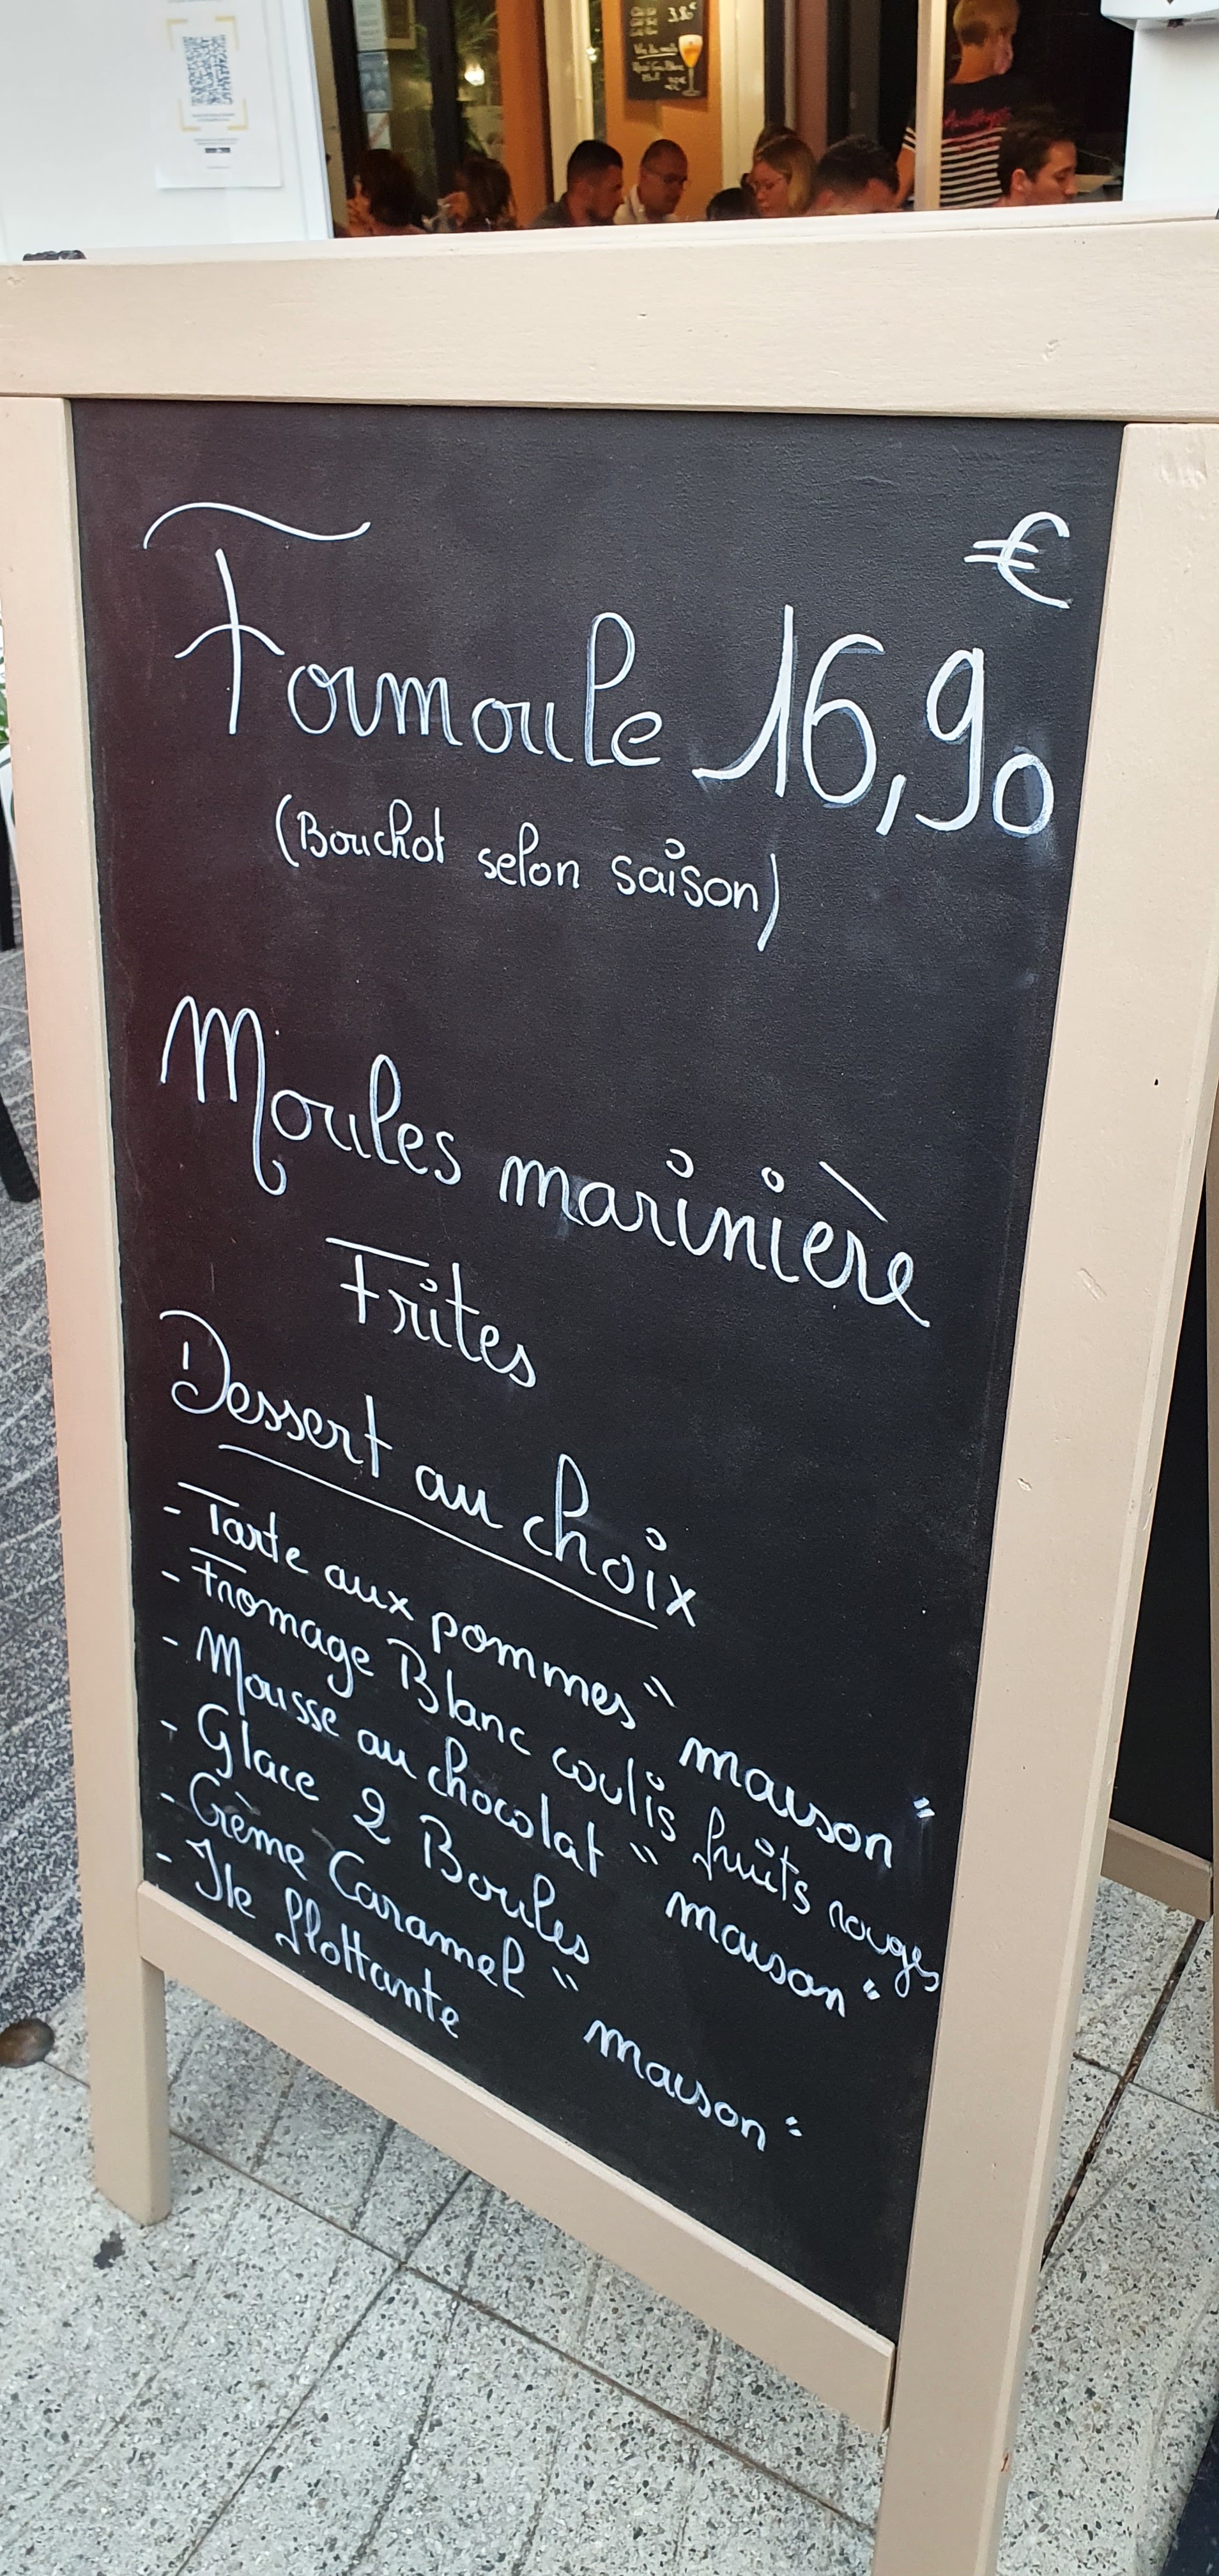 3.80€
€
Formoule 16,90
(Bouchot selon saison)
Moules marinière
Frites
Dessert au choix
- Tarte aux pommes " maison "
- Fromage Blanc coulis fruits rouges
- Mousse au chocolat " maison "
- Glace 2 Boules
- Crème Caramel " maison "
- Ile flottante